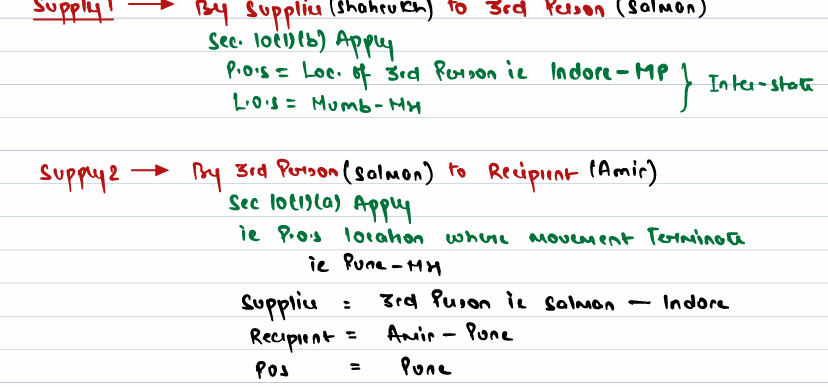 Supply 1 → By Supplier (Shahrukh) to 3rd Person (Salman)
Sec. 10(1)(b) Apply
P.O.S = Loc. of 3rd Person ie Indore - MP } Inter-state
L.O.S = Mumb - MH
Supply 2 → By 3rd Person (Salman) to Recipient (Amir)
Sec 10(1)(a) Apply
ie P.O.S location where movement Terminate
ie Pune - MH
Supplier = 3rd Person ie Salman - Indore
Recipient = Amir - Pune
POS = Pune